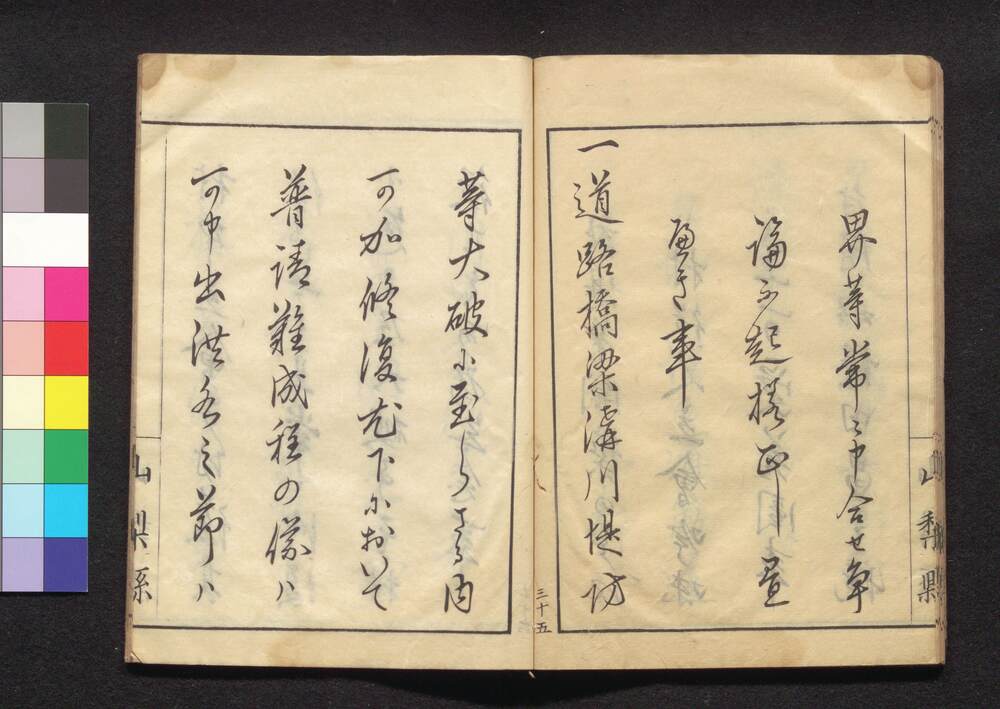 界等常々申合せ争
論不起様正申置
へき事
一道路橋梁溝川堤防
等大破に至らさる内
可加修復尤下において
普請難成程の儀ハ
可申出洪水之節ハ
三十五
山梨縣
山梨縣